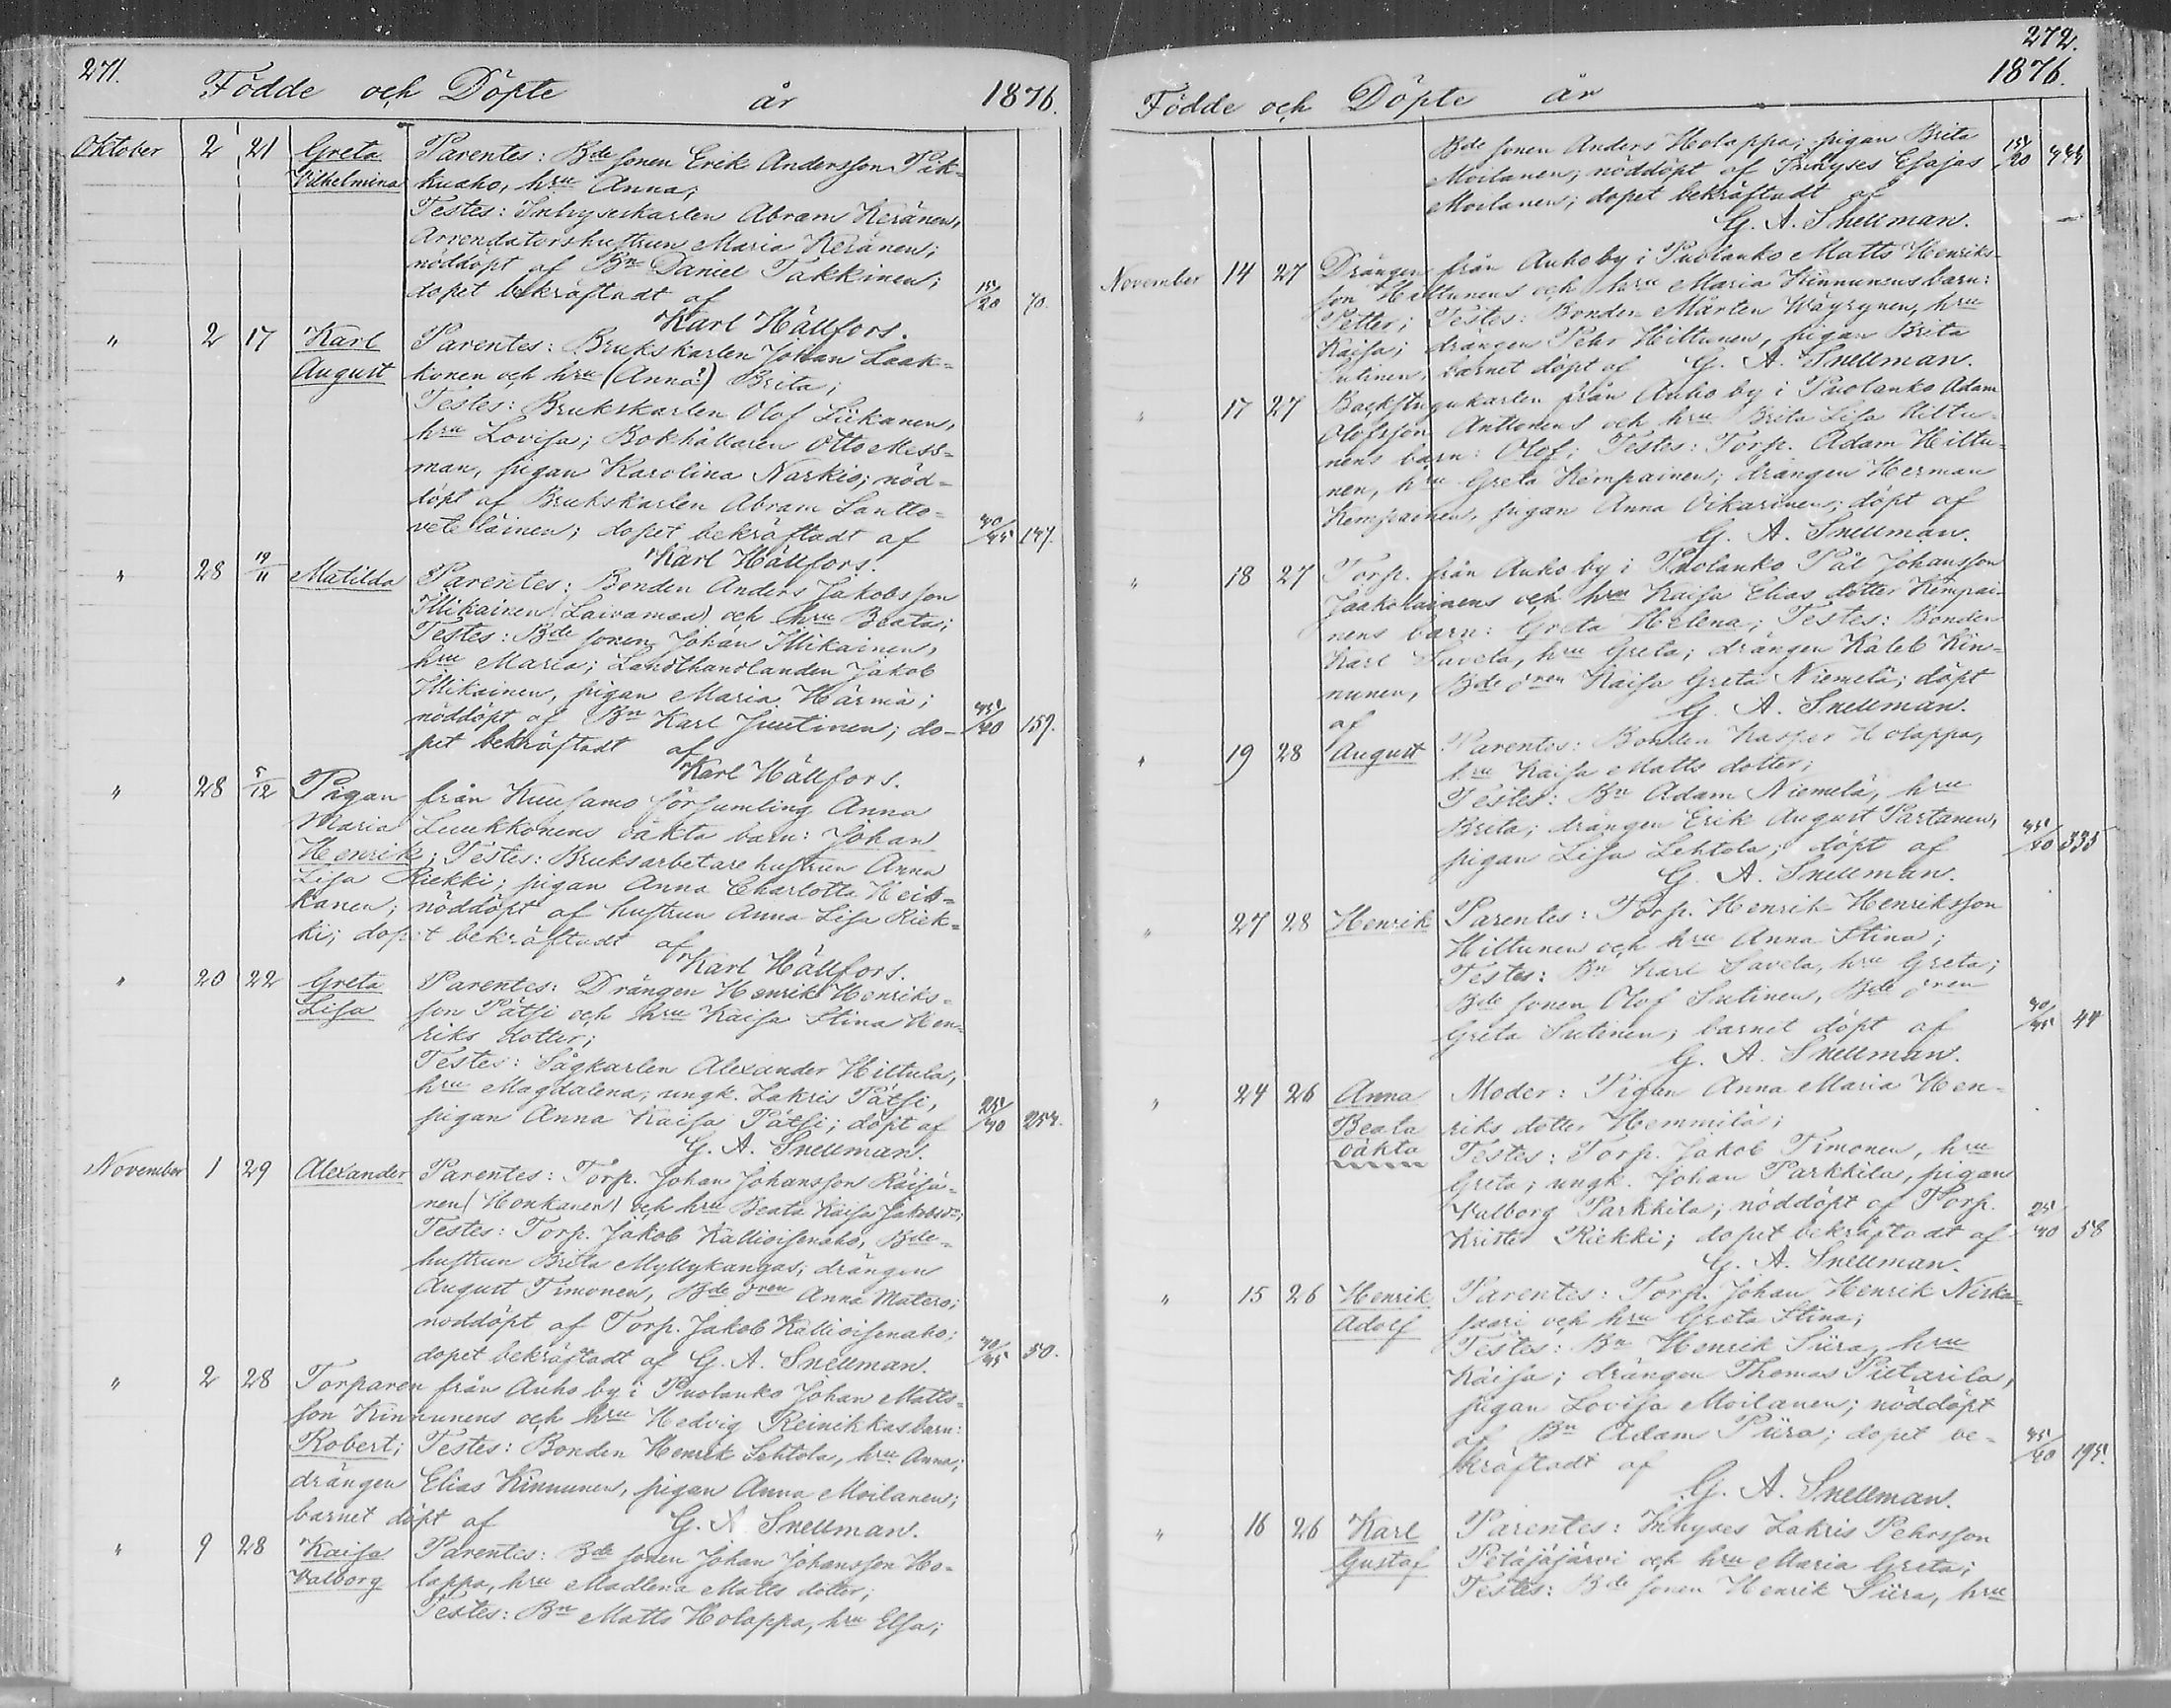 271.
Födde och Döpte år 1876.
Oktober 2 21 Greta Parentes: Bde sonen Erik Andersson Pik-
Vilhelmina kuaho, hru Anna;
Testes: Inhyseskarlen Abram Keränen,
Arrendatorshustrun Maria Keränen;
nöddöpt af Bn Daniel Takkinen;
dopet bekräftadt af 15/20 70.
Karl Hällfors.
" 2 17 Karl Parentes: Brukskarlen Johan Laak-
August konen och hru (Anna?) Brita;
Testes: Brukskarlen Olof Siikanen,
hru Lovisa; Bokhållaren Otto Mess-
man, pigan Karolina Narkio; nöd-
döpt af Brukskarlen Abram Santto-
veteläinen; dopet bekräftadt af 40/45 147.
Karl Hällfors.
" 28 19/11 Matilda Parentes: Bonden Anders Jakobsson
Illikainen (Laivamaa) och hru Beata;
Testes: Bde sonen Johan Illikainen,
hru Maria; Landthandlanden Jakob
Illikainen, pigan Maria Härmä;
nöddöpt af Bn Karl Juutinen; do- 35/40 159.
pet bekräftadt af
Karl Hällfors.
" 28 5/12 Pigan från Kuusamo församling Anna
Maria Luukkonens oäkta barn: Johan
Henrik; Testes: Bruksarbetare hustrun Anna
Lisa Riekki; pigan Anna Charlotta Heik-
kanen; nöddöpt af hustrun Anna Lisa Riek-
ki; dopet bekräftadt af
Karl Hällfors.
" 20 22 Greta Parentes: Drängen Henrik Henriks-
Lisa son Pätsi och hru Kaisa Stina Hen-
riks dotter;
Testes: Sågkarlen Alexander Hiltula,
hru Magdalena; ungk. Zakris Pätsi,
pigan Anna Kaisa Pätsi; döpt af 25/40 254.
G. A. Snellman.
November 1 29 Alexander Parentes: Torp. Johan Johansson Räisä-
nen (Honkanen) och hru Beata Kaisa Jakobsdr;
Testes: Torp. Jakob Kallioisenaho, Bde-
hustrun Brita Myllykangas; drängen
August Timonen, Bde dren Anna Matero;
nöddöpt af Torp. Jakob Kallioisenaho;
dopet bekräftadt af G. A. Snellman. 40/45 50.
" 2 28 Torparen från Auho by i Puolanko Johan Matts-
son Kinnunens och hru Hedvig Reinikkas barn:
Robert; Testes: Bonden Henrik Lehtola, hru Anna;
drängen Elias Kinnunen, pigan Anna Moilanen;
barnet döpt af G. A. Snellman.
" 9 28 Kaisa Parentes: Bde sonen Johan Johansson Ho-
Valborg lappa, hru Madlena Matts dotter;
Testes: Bn Matts Holappa, hru Elsa;
272.
Födde och Döpte år 1876.
Bde sonen Anders Holappa; pigan Brita
Moilanen; nöddöpt af Inhyses Esajas
Moilanen; dopet bekräftadt af
G. A. Snellman.
November 14 27 Drängen från Auho by i Puolanko Matts Henriks-
son Hiltunens och hru Maria Kinnunens barn:
Petter; Testes: Bonden Mårten Wäyrynen, hru
Kaisa; drängen Pehr Hiltunen, pigan Brita
Sutinen, barnet döpt af G. A. Snellman.
" 17 27 Backstugukarlen från Auho by i Puolanko Adam
Olofsson Anttonens och hru Brita Lisa Hiltu-
nens barn: Olof; Testes: Torp. Adam Hiltu-
nen, hru Greta Kempainen; drängen Herman
Kempainen, pigan Anna Oikarinen; döpt af
G. A. Snellman.
" 18 27 Torp. från Auho by i Puolanko Pål Johansson
Jaakolainens och hru Kaisa Elias dotter Kempai-
nens barn: Greta Helena; Testes: Bonden
Karl Savela, hru Greta; drängen Kaleb Kin-
nunen, Bde dren Kaisa Greta Niemelä; döpt
af G. A. Snellman.
" 19 28 August Parentes: Bonden Kasper Holappa,
hru Kaisa Matts dotter;
Testes: Bn Adam Niemelä, hru
Brita; drängen Erik August Partanen,
pigan Lisa Lehtola; döpt af 35/40 335
G. A. Snellman.
" 27 28 Henrik Parentes: Torp. Henrik Henriksson
Hiltunen och hru Anna Stina;
Testes: Bn Karl Savela, hru Greta;
Bde sonen Olof Sutinen, Bde dren
Greta Sutinen; barnet döpt af 40/45 44
G. A. Snellman.
" 24 26 Anna Moder: Pigan Anna Maria Hen-
Beata riks dotter Hemmilä;
oäkta Testes: Torp. Jakob Timonen, hru
Greta; ungk. Johan Parkkila, pigan
Valborg Parkkila; nöddöpt af Torp.
Krister Riekki; dopet bekräftadt af 25/40 58
G. A. Snellman.
" 15 26 Henrik Parentes: Torp. Johan Henrik Niska-
Adolf saari och hru Greta Stina;
Testes: Bn Henrik Siira, hru
Kaisa; drängen Thomas Pietarila,
pigan Lovisa Moilanen; nöddöpt
af Bn Adam Piira; dopet be- 35/40 195.
kräftadt af
G. A. Snellman.
" 16 26 Karl Parentes: Inhyses Zakris Pehrsson
Gustaf Petäjäjärvi och hru Maria Greta;
Testes: Bde sonen Henrik Siira, hru